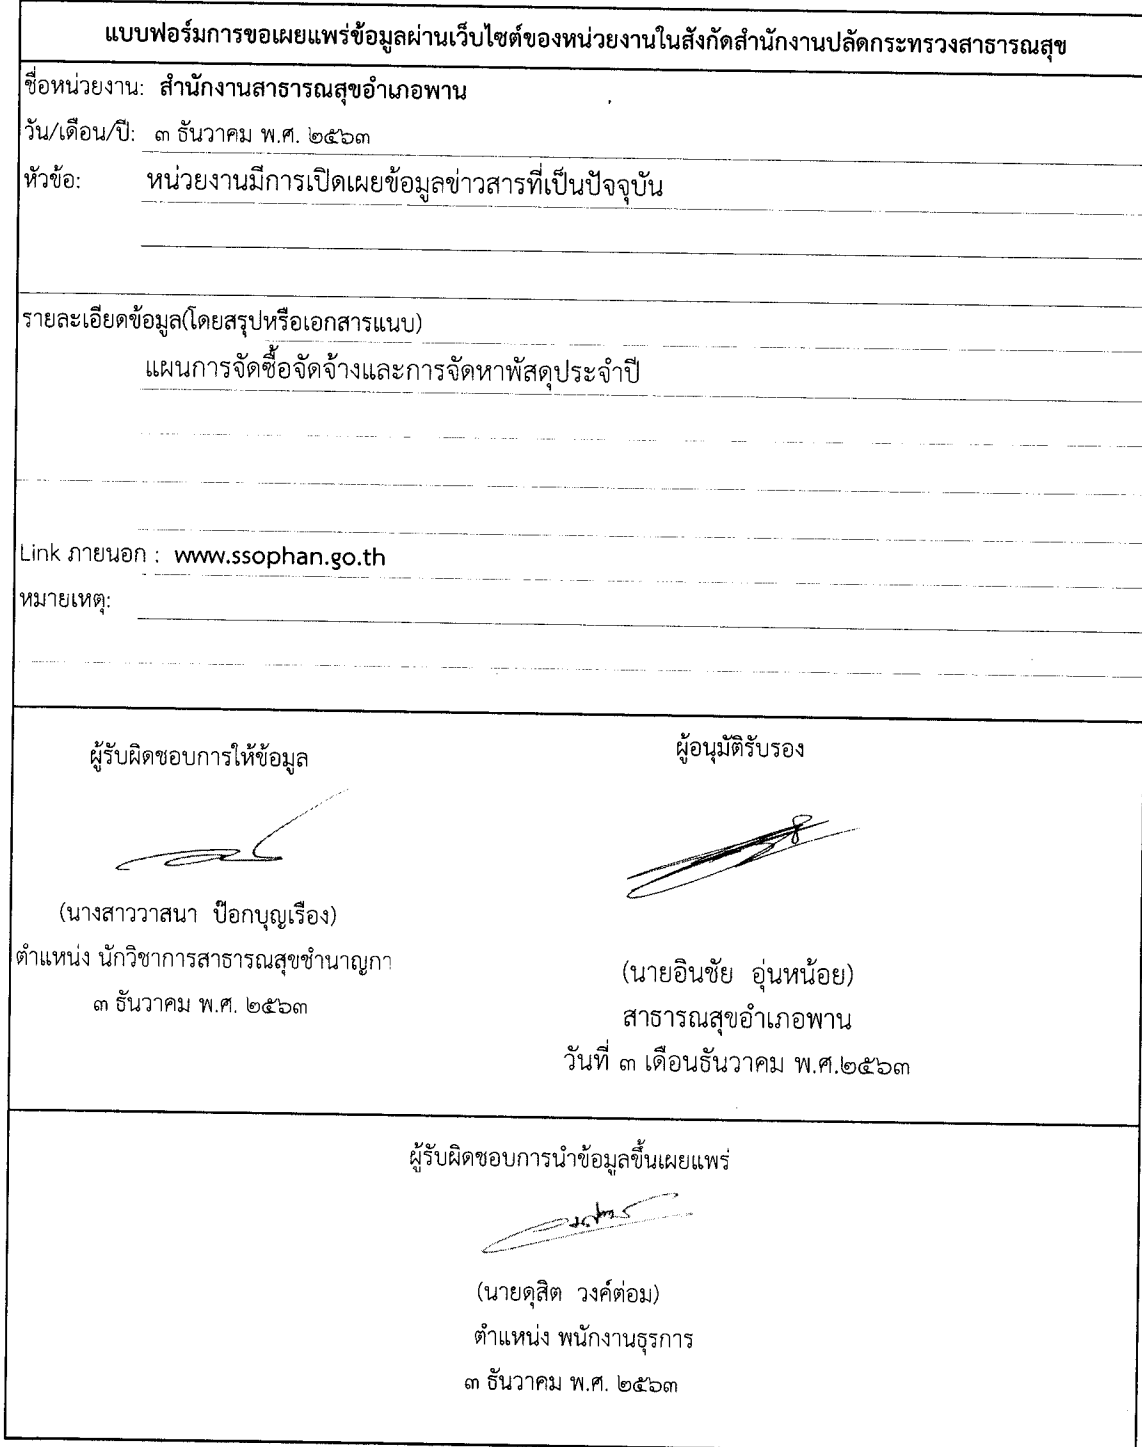 แบบฟอร์มการขอเผยแพร่ข้อมูลผ่านเว็บไซต์ของหน่วยงานในสังกัดสำนักงานปลัดกระทรวงสาธารณสุข
ชื่อหน่วยงาน: สำนักงานสาธารณสุขอำเภอพาน
วัน/เดือน/ปี: ๓ ธันวาคม พ.ศ. ๒๕๖๓
หัวข้อ: หน่วยงานมีการเปิดเผยข้อมูลข่าวสารที่เป็นปัจจุบัน
รายละเอียดข้อมูล(โดยสรุปหรือเอกสารแนบ)
แผนการจัดซื้อจัดจ้างและการจัดหาพัสดุประจำปี
Link ภายนอก : www.ssophan.go.th
หมายเหตุ:
ผู้รับผิดชอบการให้ข้อมูล
(นางสาววาสนา ป๊อกบุญเรือง)
ตำแหน่ง นักวิชาการสาธารณสุขชำนาญกา
๓ ธันวาคม พ.ศ. ๒๕๖๓
ผู้อนุมัติรับรอง
(นายอินชัย อุ่นหน้อย)
สาธารณสุขอำเภอพาน
วันที่ ๓ เดือนธันวาคม พ.ศ.๒๕๖๓
ผู้รับผิดชอบการนำข้อมูลขึ้นเผยแพร่
(นายดุสิต วงค์ต่อม)
ตำแหน่ง พนักงานธุรการ
๓ ธันวาคม พ.ศ. ๒๕๖๓